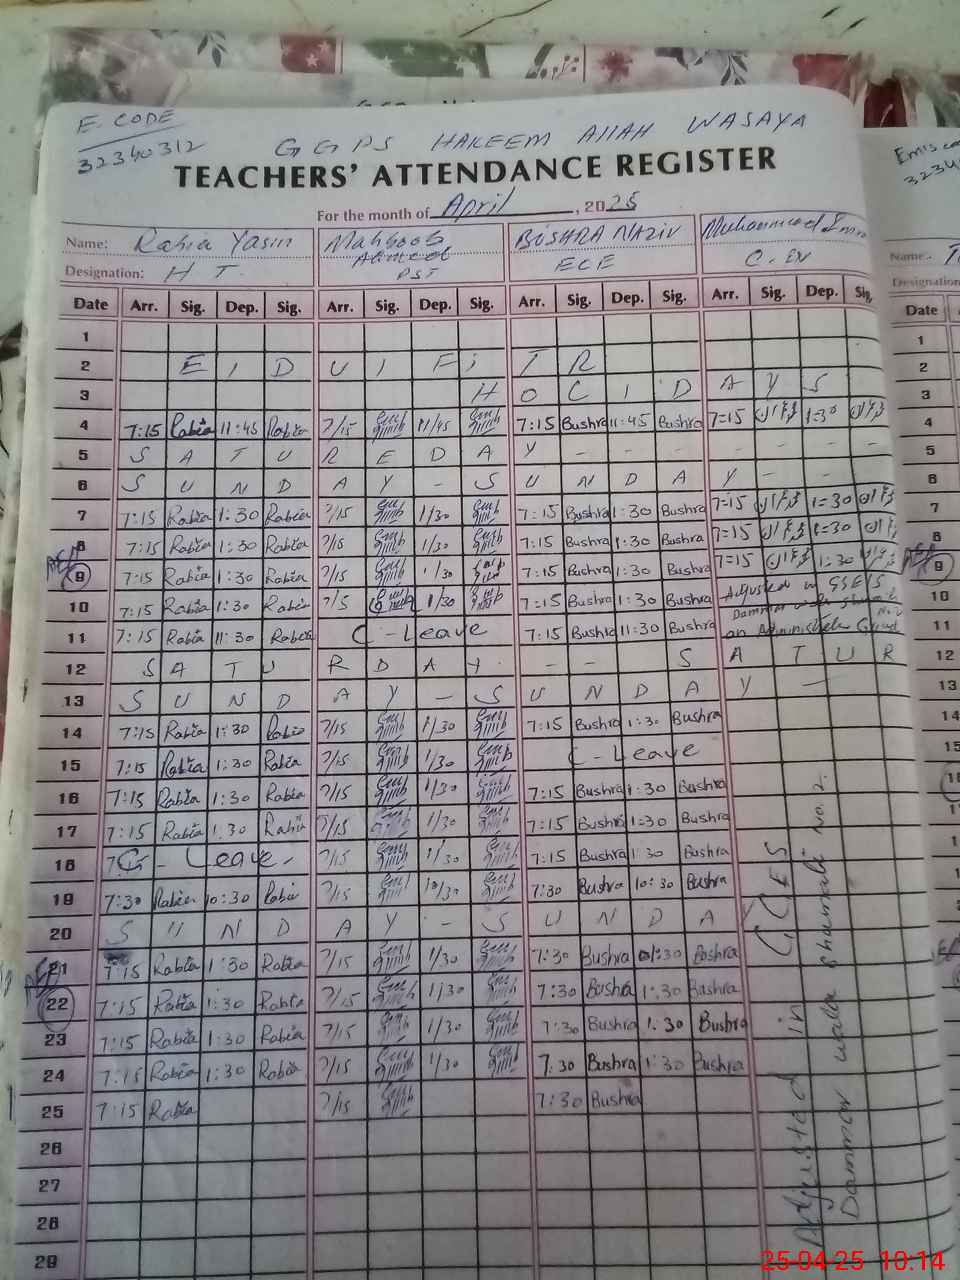 E. CODE
32340312
GGPS HAKEEM AllAH WASAYA
TEACHERS' ATTENDANCE REGISTER
For the month of April, 2025
Name: Rabia Yasin Mahboob Ahmed BUSHRA NAZIV Muhammad
Designation: H T. PST ECE C. EV
Date Arr. Sig. Dep. Sig. Arr. Sig. Dep. Sig. Arr. Sig. Dep. Sig. Arr. Sig. Dep. Sig.
1
2 E I D U I F i T R
3 H O C I D A Y S
4 7:15 Rabia 11:45 Rabia 7/15 11/45 7:15 Bushra 11:45 Bushra 7=15 1=30
5 S A T U R E D A Y - - - - -
6 S U N D A Y - S U N D A Y - -
7 7:15 Rabia 1:30 Rabia 7/15 1/30 7:15 Bushra 1:30 Bushra 7=15 1=30
8 7:15 Rabia 1:30 Rabia 7/15 1/30 7:15 Bushra 1:30 Bushra 7=15 1=30
9 7:15 Rabia 1:30 Rabia 7/15 1/30 7:15 Bushra 1:30 Bushra 7=15 1:30
10 7:15 Rabia 1:30 Rabia 7/5 1/30 7:15 Bushra 1:30 Bushra Adjusted in
11 7:15 Rabia 11:30 Rabia C-Leave 7:15 Bushra 11:30 Bushra
12 S A T U R D A Y - - S A T U R
13 S U N D A Y - S U N D A Y -
14 7:15 Rabia 1:30 Rabia 7/15 1/30 7:15 Bushra 1:30 Bushra
15 7:15 Rabia 1:30 Rabia 7/15 1/30 C-Leave
16 7:15 Rabia 1:30 Rabia 7/15 1/30 7:15 Bushra 1:30 Bushra
17 7:15 Rabia 1:30 Rabia 7/15 1/30 7:15 Bushra 1:30 Bushra
18 C - Leave - 7/15 1/30 7:15 Bushra 1:30 Bushra
19 7:30 Rabia 10:30 Rabia 7/15 10/30 7:30 Bushra 10:30 Bushra
20 S U N D A Y - S U N D A Y
21 7:15 Rabia 1:30 Rabia 7/15 1/30 7:30 Bushra 01:30 Boshra
22 7:15 Rabia 1:30 Rabia 7/15 1/30 7:30 Bushra 1:30 Bushra
23 7:15 Rabia 1:30 Rabia 7/15 1/30 7:30 Bushra 1:30 Bushra
24 7:15 Rabia 1:30 Rabia 7/15 1/30 7:30 Bushra 1:30 Bushra
25 7:15 Rabia 7/15 7:30 Bushra
26
27
28
29
Adjusted in
Dammar walla Shumali No. 2.
Name:
Designation
Date
1
2
3
4
5
6
7
8
9
10
11
12
13
25-04-25 10:14